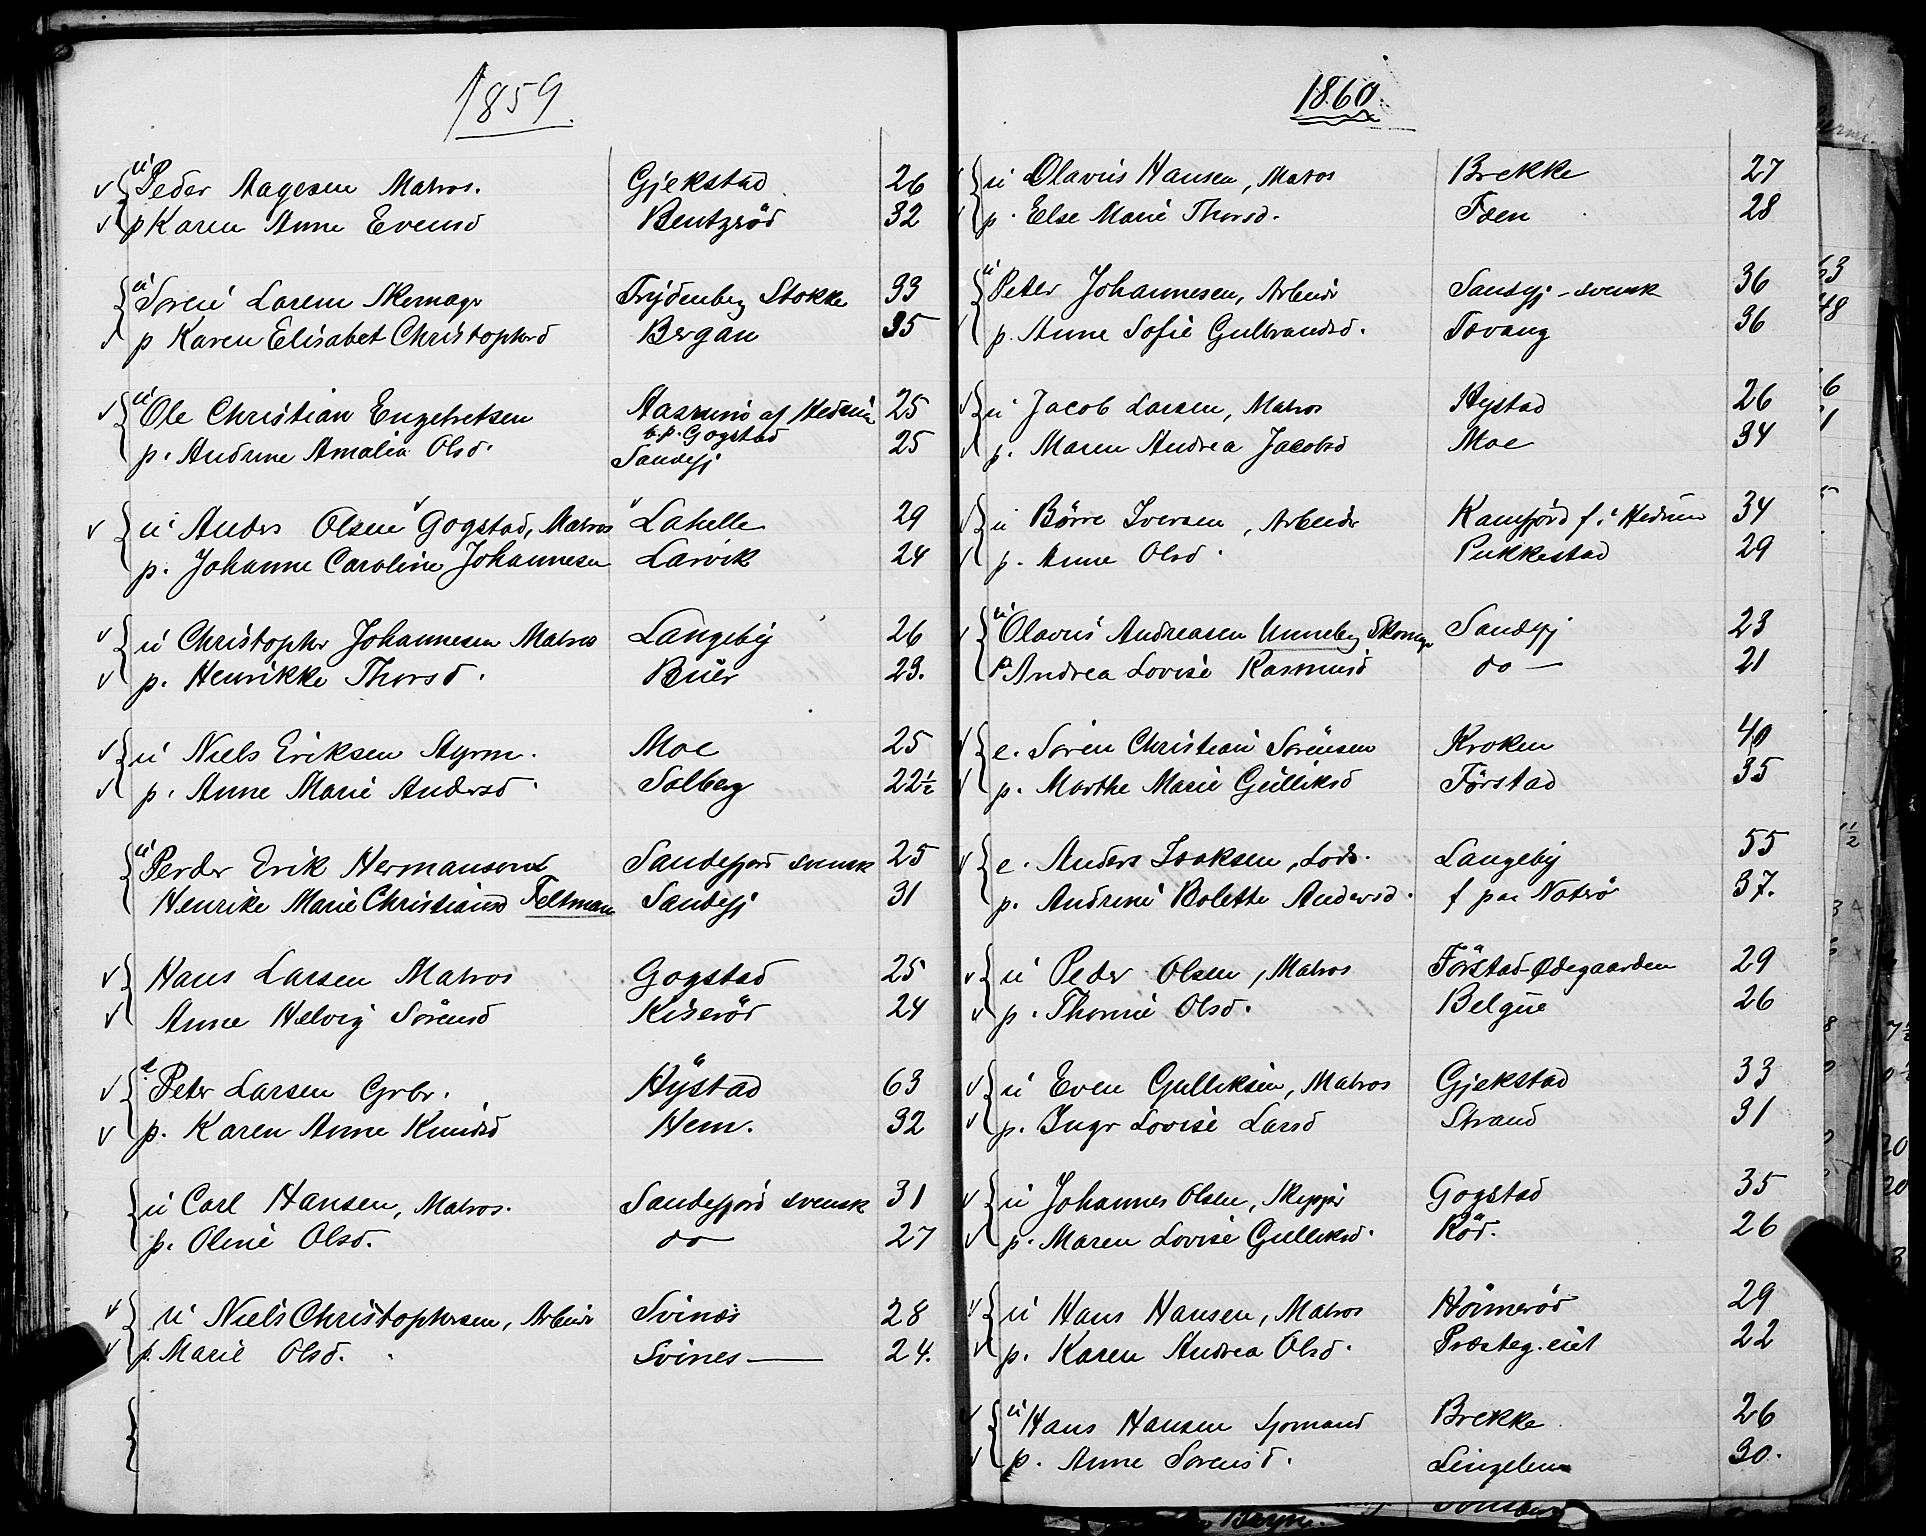 1859.
u Peder Aagesen Matros. Gjekstad 26
p Karen Anne Evensd Bentzrød 32
u Søren Larsen Skomagr Frydenberg Stokke 33
p Karen Elisabet Christophersd Bergan 35
u Ole Christian Engebretsen af Hedrum 25
b.p. Gogstad
p. Andrine Amalia Olsd. Sandefj 25
u Anders Olsen Gogstad, Matros Lahelle 29
p. Johanne Caroline Johannesen Larvik 24
u Christopher Johannesen Matros Langeby 26
p. Henrikke Thorsd. Buer 23.
u Niels Eriksen Styrm. Moe 25
p. Anne Marie Andersd. Solberg 22½
u Perder Erik Hermanson Sandefjord svensk 25
Henrike Marie Christiansd Feltman Sandefj 31
Hans Larsen Matros Gogstad 25
Anne Helvig Sørensd Kiserød 24
e. Peter Larsen Grbr. Hystad 63
p. Karen Anne Knudsd Hem. 32
u Carl Hansen, Matros. Sandefjord svensk 31
p. Oline Olsd. do 27
u Niels Christophersen, Arbeidr Svines 28
p. Marie Olsd. Svines — 24.
1860.
u Olavus Hansen, Matros Brekke 27
p. Else Marie Thorsd. Fæen 28
u Peter Johannesen, Arbeidr Sandefj – svensk 36
p. Anne Sofie Gulbrandsd. Tovang 36
u Jacob Larsen, Matros Hystad 26
p. Maren Andrea Jacobsd Moe 34
u Børre Iversen, Arbeidr Kamfjord f. i Hedrum 34
p. Anne Olsd. Pukkestad 29
u Olavus Andreasen Unneberg Skomagr Sandefj 23
p Andrea Lovise Rasmusd do — 21
e. Søren Christian Sørensen Kroken 40
p. Marthe Marie Gulliksd Førstad 35
e. Anders Isaksen, Lods. Langeby 55
p. Andrine Bolette Andersd. f paa Natrø 37.
u Peder Olsen, Matros Førstad-Ødegaarden 29
p. Thorine Olsd. Belgue 26
u Even Gulliksen, Matros Gjekstad 33
p. Ingr Lovise Larsd Strand 31
u Johannes Olsen, Skippr Gogstad 35
p. Maren Lovise Gulliksd. Rød. 26
u Hans Hansen, Matros Hoimerød 29
p. Karen Andrea Olsd. Præsteg. eiet 22
u Hans Hansen Sjomand Brekke 26
p. Anne Sørensd. Lingelem 30.